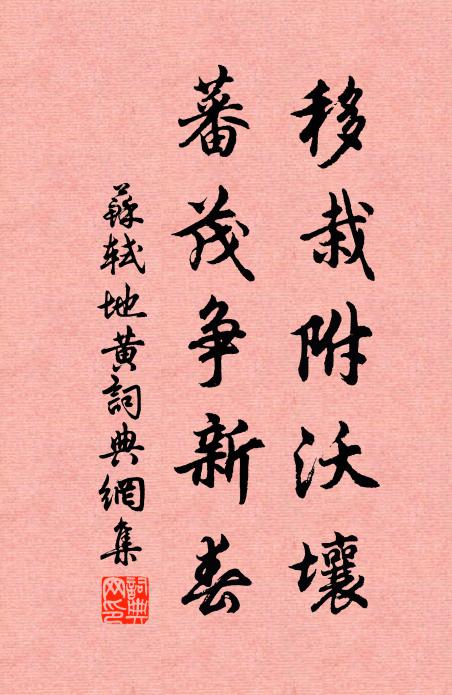 移栽附沃壤
蕃茂争新春
蘇軾地黄詞典網集
詞典网印